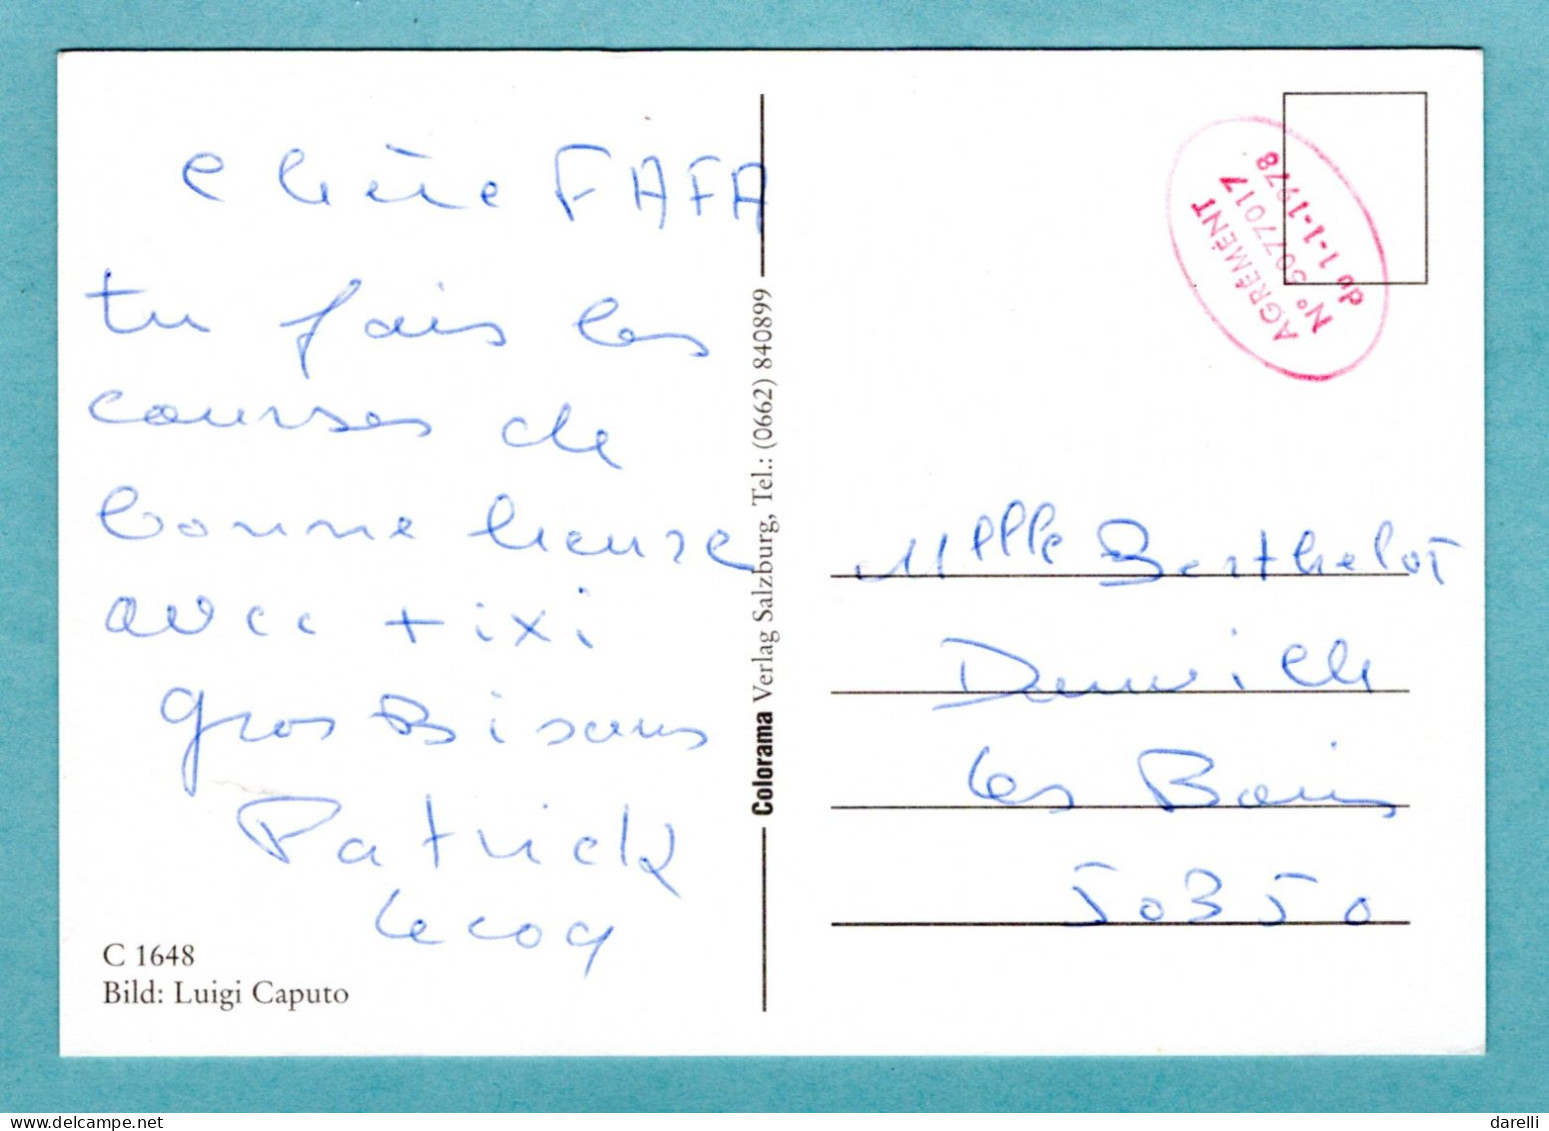 chère FAFA
tu fais les
courses de
bonne heure
avec + ixi
gros Bisous
Patrick
Lecoq
C 1648
Bild: Luigi Caputo
Colorama Verlag Salzburg, Tel.: (0662) 840899
AGRÉMENT
N° 5077017
du 1-1-1978
Mllle Berthelot
Donville
les Bains
50350
darelli